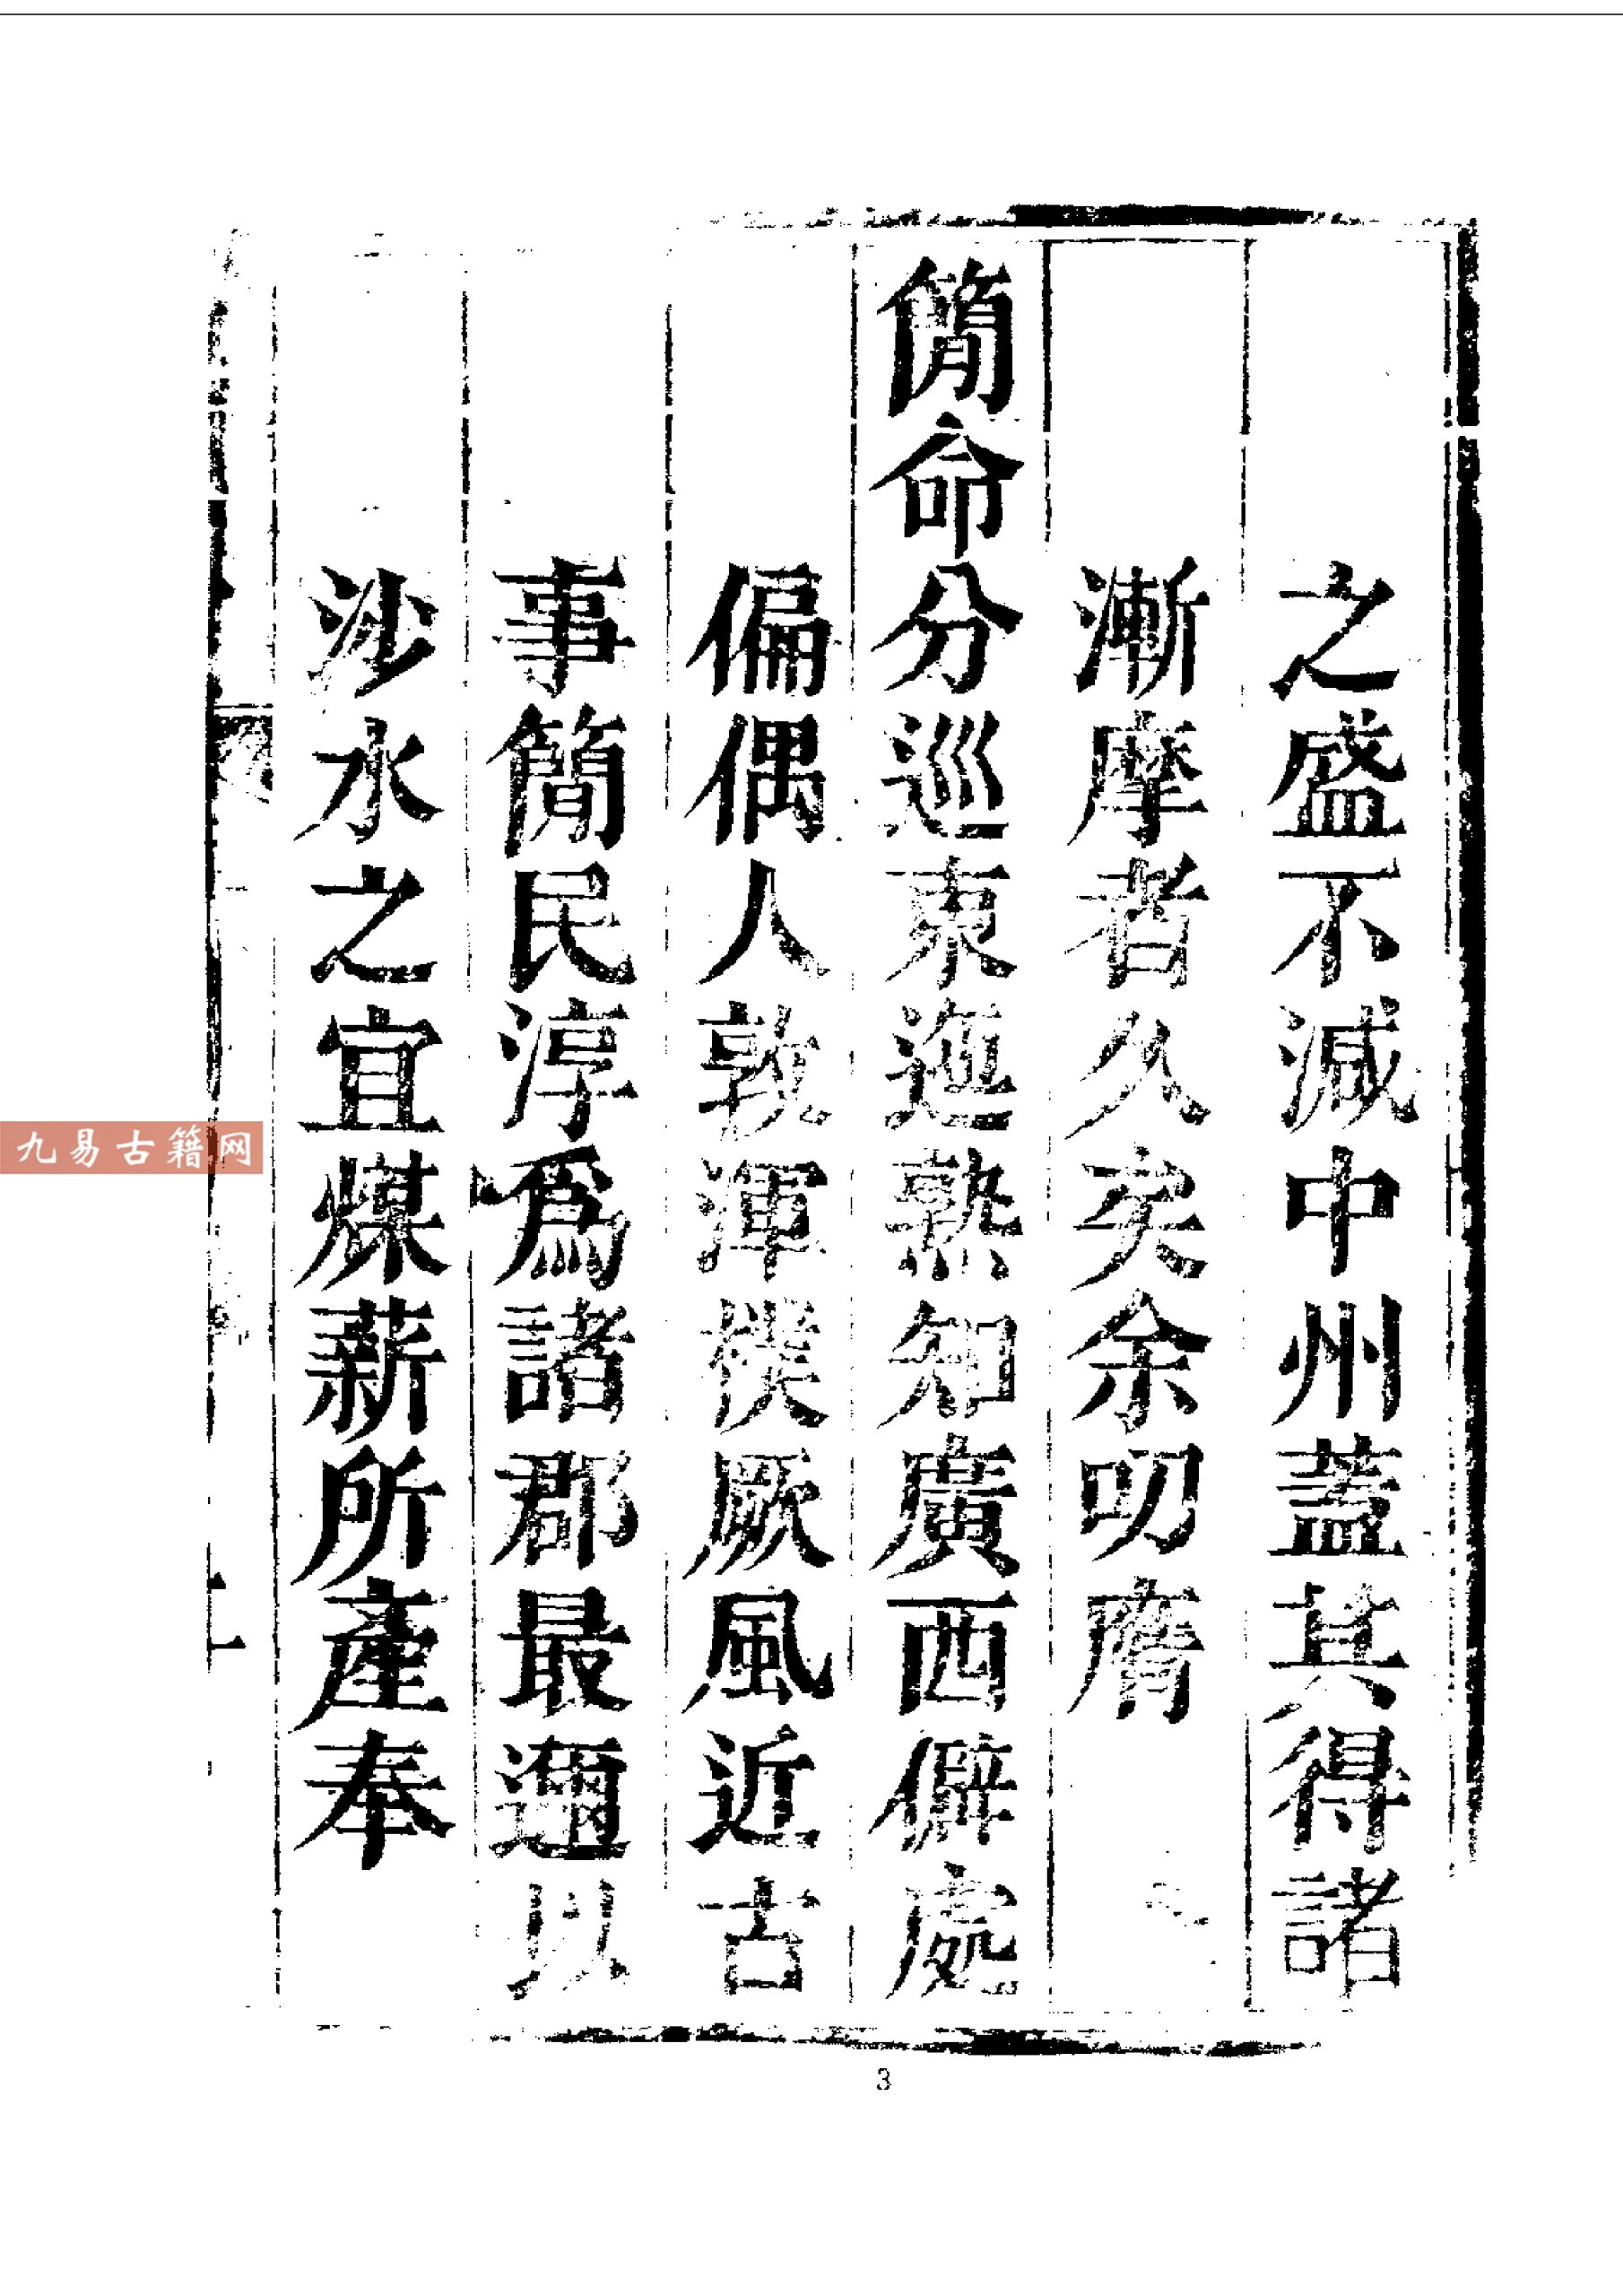 之盛不減中州蓋其得諸
漸摩者久矣余叨膺
簡命分巡東迤熟知廣西僻處
偏偶人敦渾樸厥風近古
事簡民淳爲諸郡最邇以
沙水之宜煤薪所產奉
九易古籍网
3